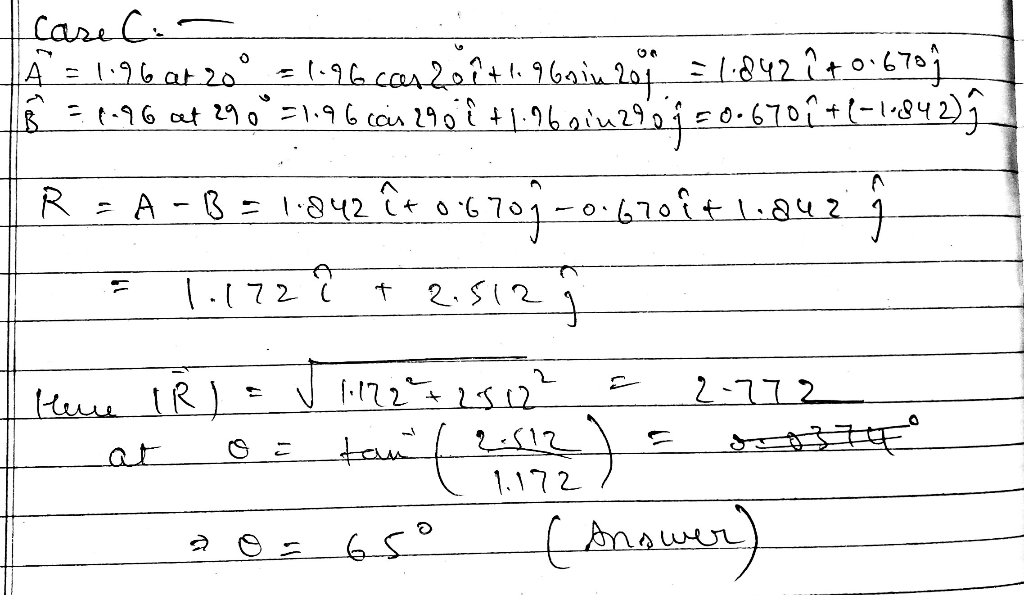 Case C:-
A⃗ = 1.96 at 20° = 1.96 cos 20° î + 1.96 sin 20° ĵ = 1.842 î + 0.670 ĵ
B⃗ = 1.96 at 290° = 1.96 cos 290° î + 1.96 sin 290° ĵ = 0.670 î + (-1.842) ĵ
R = A - B = 1.842 î + 0.670 ĵ - 0.670 î + 1.842 ĵ
= 1.172 î + 2.512 ĵ
Here |R⃗| = √1.172² + 2.512² = 2.772
at θ = tan⁻¹ (2.512 / 1.172) =
⇒ θ = 65° (Answer)